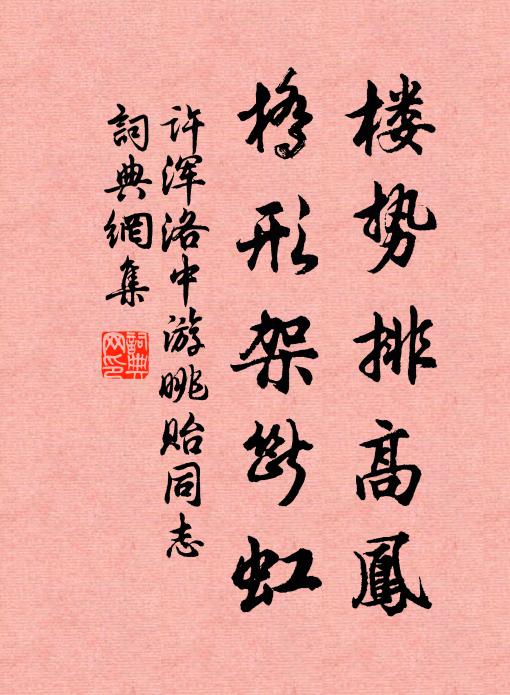 楼势排高鳳
橋形架断虹
许浑洛中游眺贻同志
詞典網集
詞典網印